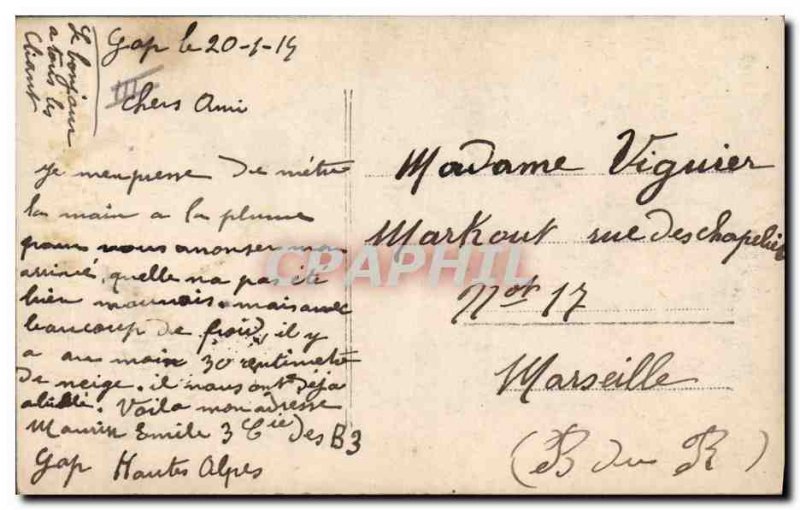 Gap le 20-1-15
III
Chers Ami
Je m'enpresse De métre
la main a la plume
pour vous anonser mon
arrivé, quelle na pas été
bien mauvais. mais avec
beaucoup de froid, il y
a au moin 30 centimetre
De neige. il nous ont Déja
abillé. Voila mon adresse
Maurin Emile 3 Cie des B3
Gap Hautes Alpes
Le bonjour
a tous les
Cliant
Madame Viguier
Markout rue des chapeliers
Not 17
Marseille
(B du R)
CPAPHIL